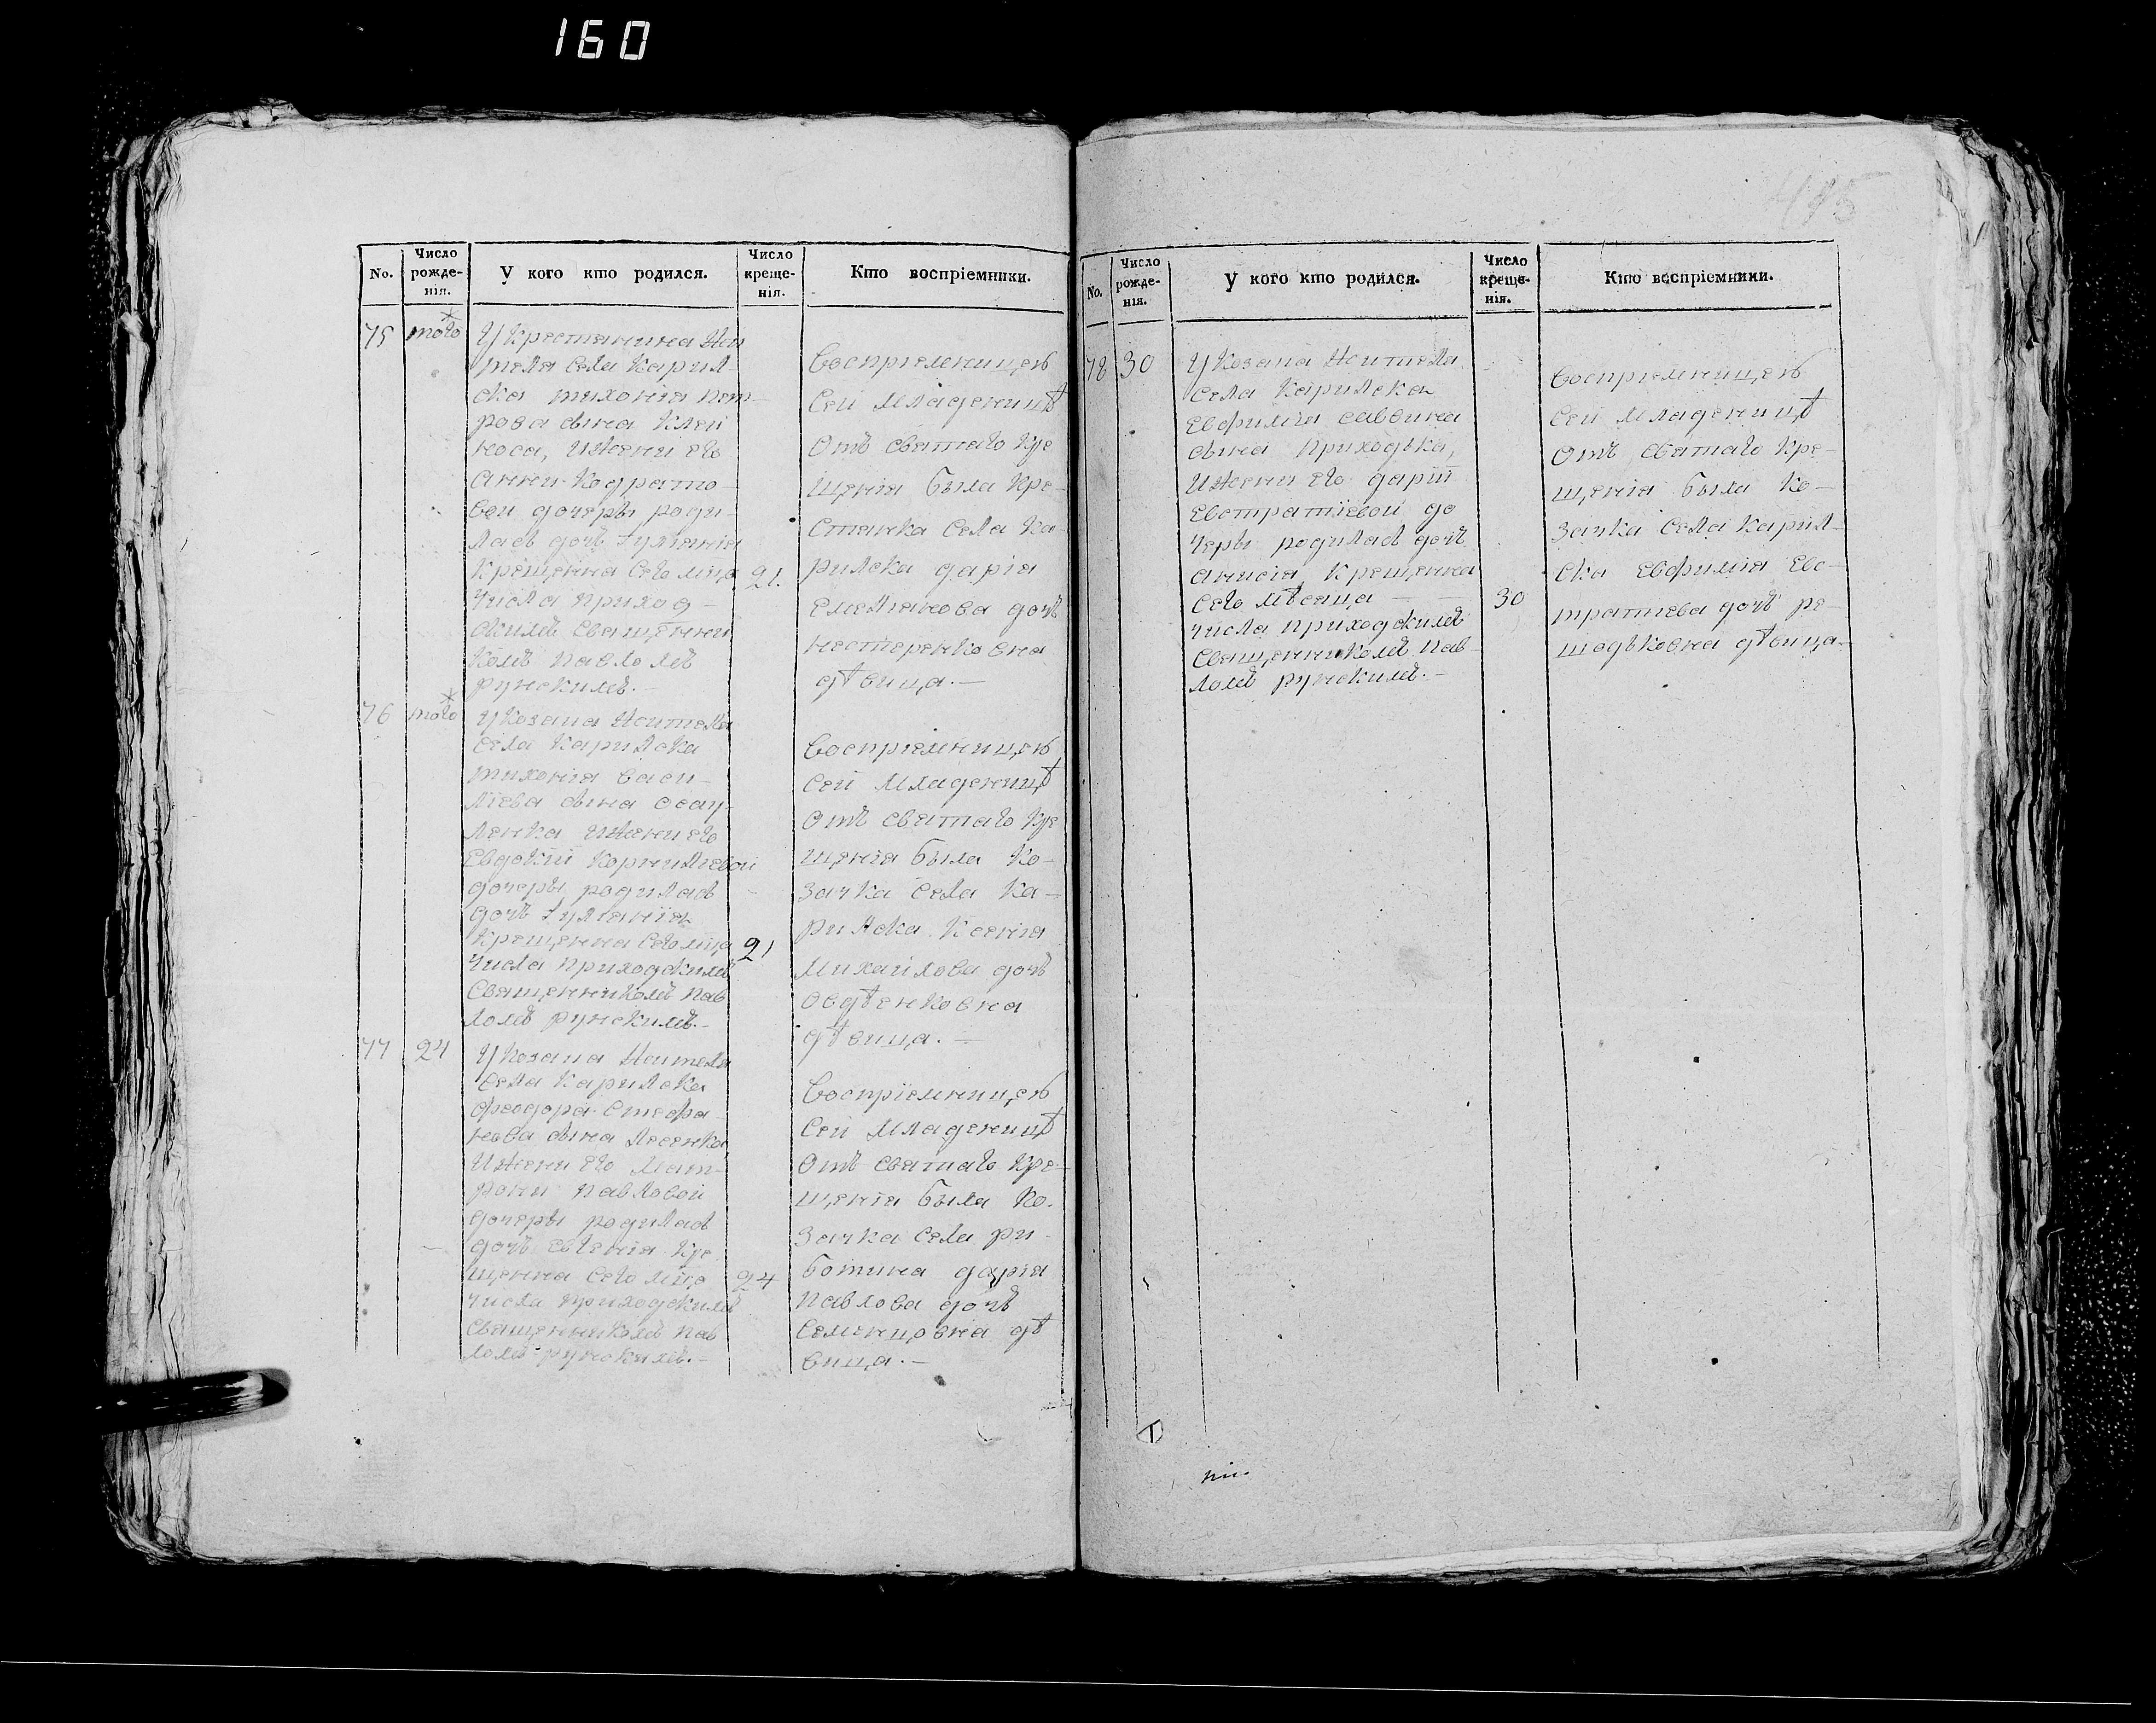 160
No.
Число рожде- нія.
У кого кто родился.
Число креще- нія.
Кто воспріемники.
75 того
У Крестянина Жи
теля Села Карил-
ска тихонія пет-
рова сына Клей
носа, Ижени его
Анни Кодрато-
вои дочеры роди-
лась дочь Іулянія
Крещенна Сего мца 21.
Числа приход-
скимъ Священни
комъ павломъ
рунскимъ.-
Воспріемницею
Сей Младеницѣ
Отъ Святаго Кре
щенія была Кре-
стянка Села Ка-
рилска дарія
Емелянова дочь
нестеренковна
дѣвица.-
76 того
У Козака Жителя
Села Карилска
тихонія васи-
лиева сына осау-
ленка Ижени его
Евдокіи Корнилиевой
дочеры родилась
дочь Іуліанія
Крещенна Сего мца 21
Числа приходскимъ
Священникомъ пав
ломъ рунскимъ.-
Воспріемницею
Сей Младеницѣ
Отъ Святаго Кре
щенія была Ко-
зачка Села Ка-
рилска Ксенія
Михайлова дочь
овдѣенковна
дѣвица.-
77 24
У Козака Жителя
Села Карилска
феодора Стефа
нова сына Лесенка
Ижени его Мат-
рони павловой
дочеры родилась
дочь Евгенія Кре
щенна Сего мца 24
Числа приходскимъ
Священникомъ пав
ломъ рунскимъ.-
Воспріемницею
Сей Младеницѣ
Отъ Святаго Кре-
щенія была Ко-
зачка Села ри-
ботина дарія
павлова дочь
Семенцовна дѣ
вица.-
No.
Число рожде- нія.
У кого кто родился.
Число креще- нія.
Кто воспріемники.
78 30
У Козака Жителя
Села Карилска
Евфимія саввина
сына приходька,
Ижени его даріи
Евстратіевой до
черы родилась дочь
анисія Крещенна
Сего мѣсяца 30
числа приходскимъ
Священникомъ пав-
ломъ рунскимъ.-
Воспріемницею
Сей Младеницѣ
Отъ Святаго Кре-
щенія была Ко-
зачка Села Карил-
ска Евфимія Евс-
тратиева дочь ре-
шодьковна дѣвица.